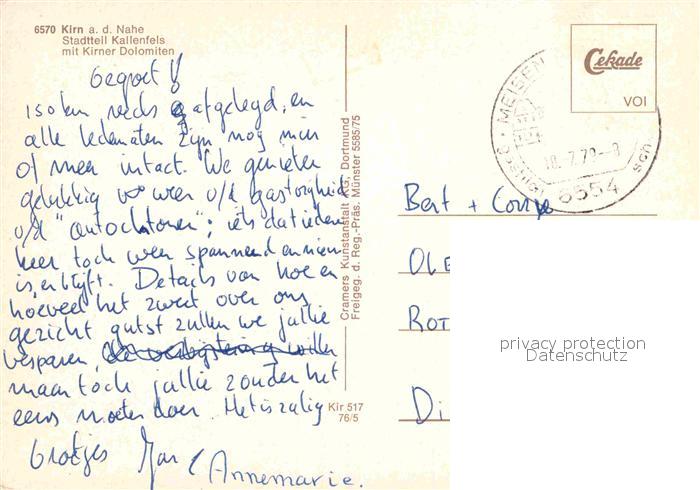 6570 Kirn a. d. Nahe
Stadtteil Kallenfels
mit Kirner Dolomiten
Gegroet!
150 km reeds afgelegd, en
alle ledematen zijn nog min
of meer intact. We genieten
gelukkig weer v/d gastvrijheid
v/d "autochtonen"; iets dat iedere
keer toch weer spannend en nieuw
is, en blijft. Details van hoe en
hoeveel het zweet over ons
gezicht gutst zullen we jullie
besparen,
maar toch jullie zonder het
eens moeten doen. Het is zalig
Groetjes Annemarie.
Cramers Kunstanstalt KG, Dortmund
Freigeg. d. Reg.-Präs. Münster 5585/75
Kir 517
76/5
Cekade
VOI
MEISEN
6554
Bert +
OLE
ROT
DI
privacy protection
Datenschutz